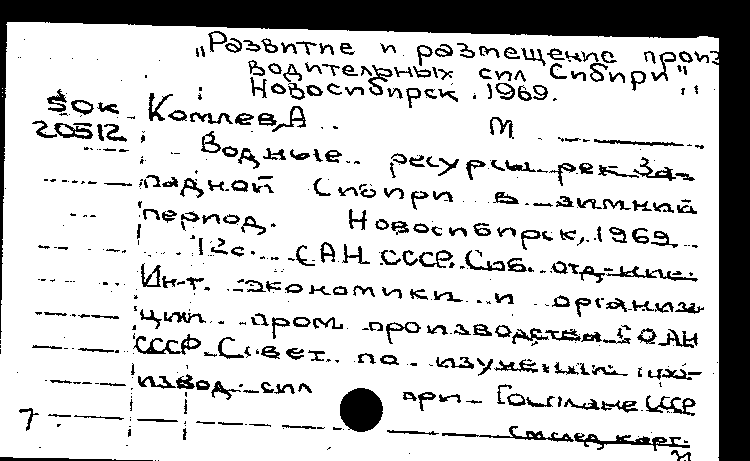 „Развитие и размещение произ
водительных сил Сибири",
Новосибирск. 1969.
50к
Комлев, А М
20512
Водные ресурсы рек За-
падной Сибири в зимний
период. Новосибирск, 1969
12с. (АН СССР. Сиб. отд-ние.
Ин-т. экономики и организа
ции пром. производства СО АН
СССР. Совет по изучению про-
извод. сил при Госплане СССР
См. след. карт.
7